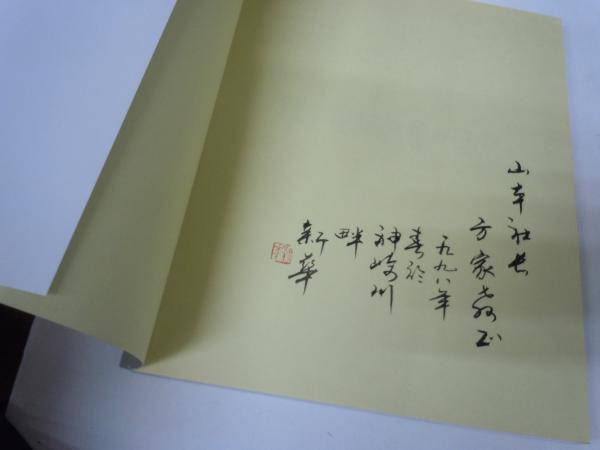 山本社长
方家教正
一九九八年
春於
神崎川
畔
新華